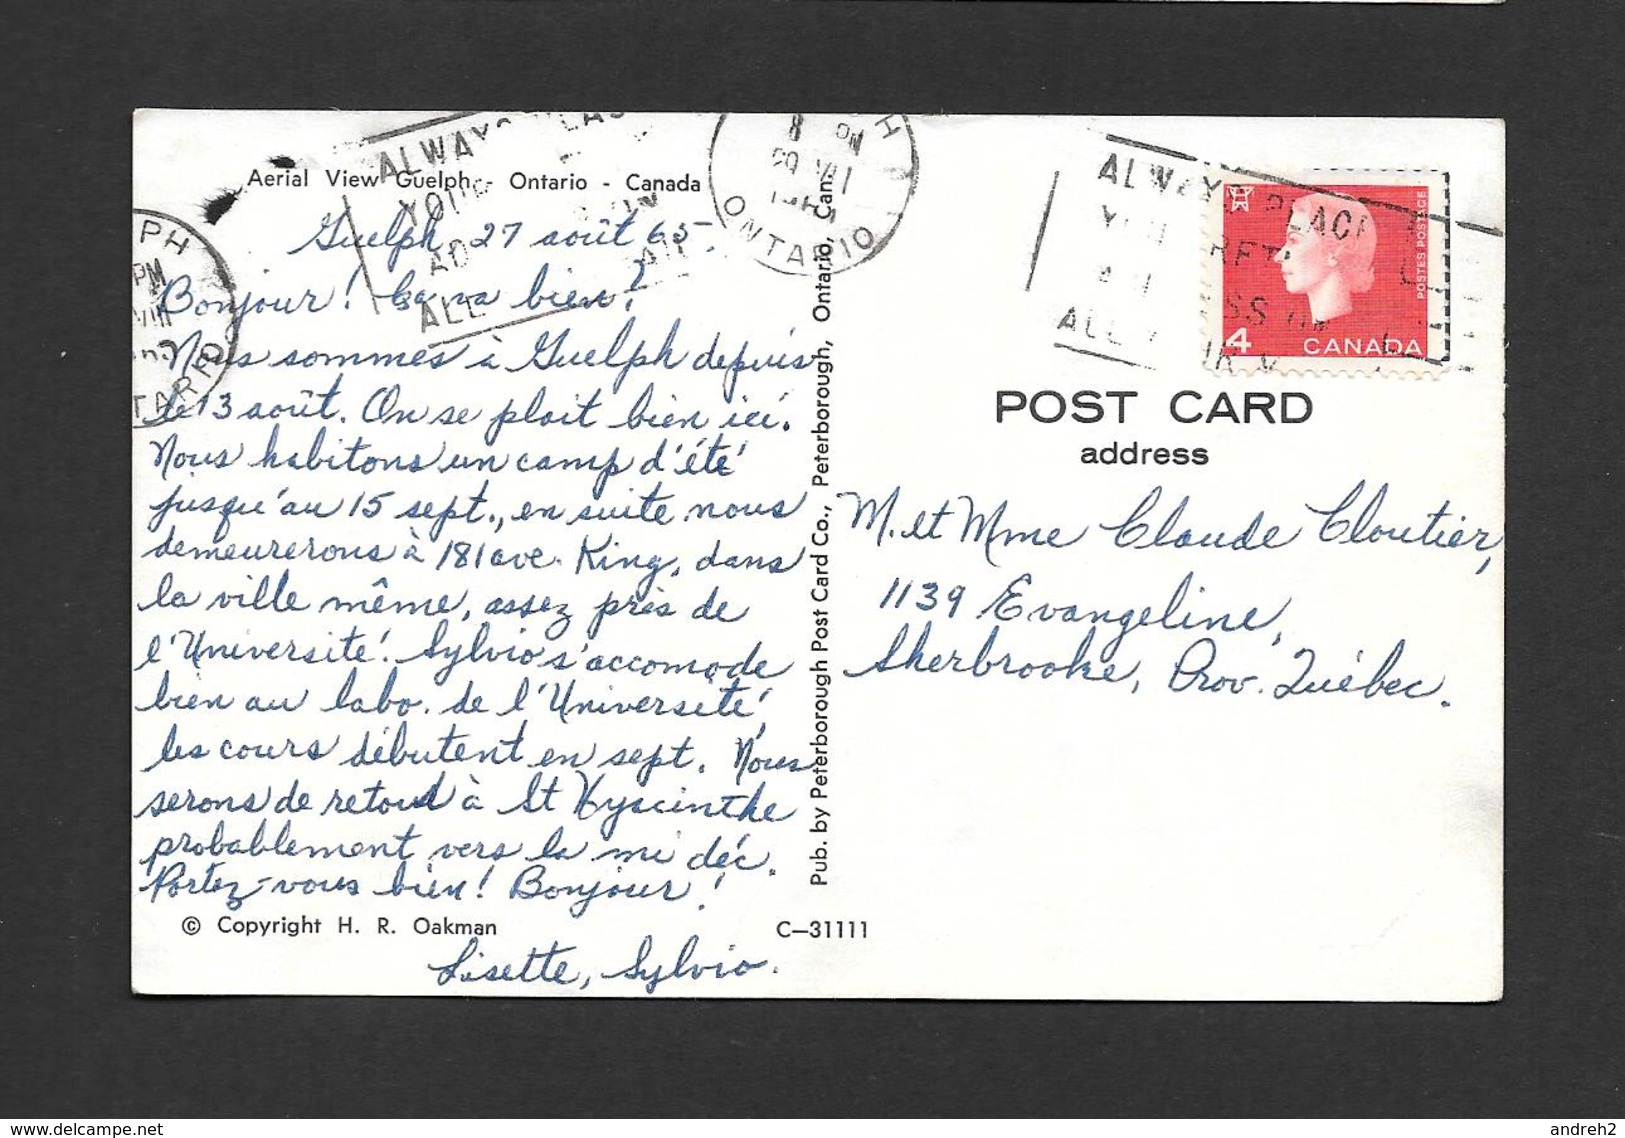 Aerial View Guelph - Ontario - Canada
Guelph, 27 août 65.
Bonjour! Ça va bien?
Nous sommes à Guelph depuis
le 13 août. On se plait bien ici.
Nous habitons un camp d'été
jusqu'au 15 sept., en suite nous
demeurerons à 181 ave. King, dans
la ville même, assez près de
l'Université. Sylvio s'accomode
bien au labo. de l'Université,
les cours débutent en sept. Nous
serons de retour à St Hyacinthe
probablement vers la mi déc.
Portez-vous bien! Bonjour!
© Copyright H. R. Oakman
C-31111
Lisette, Sylvio.
Pub. by Peterborough Post Card Co., Peterborough, Ontario, Can.
ALWAYS PLACE
ALL
PM
ONTARIO
PH
PM
VIII
TARIO
ALWAYS PLACE
ALL
POSTES POSTAGE
4 CANADA
POST CARD
address
M. et Mme Claude Cloutier,
1139 Evangeline,
Sherbrooke, Prov. Québec.
delcampe.net
andreh2